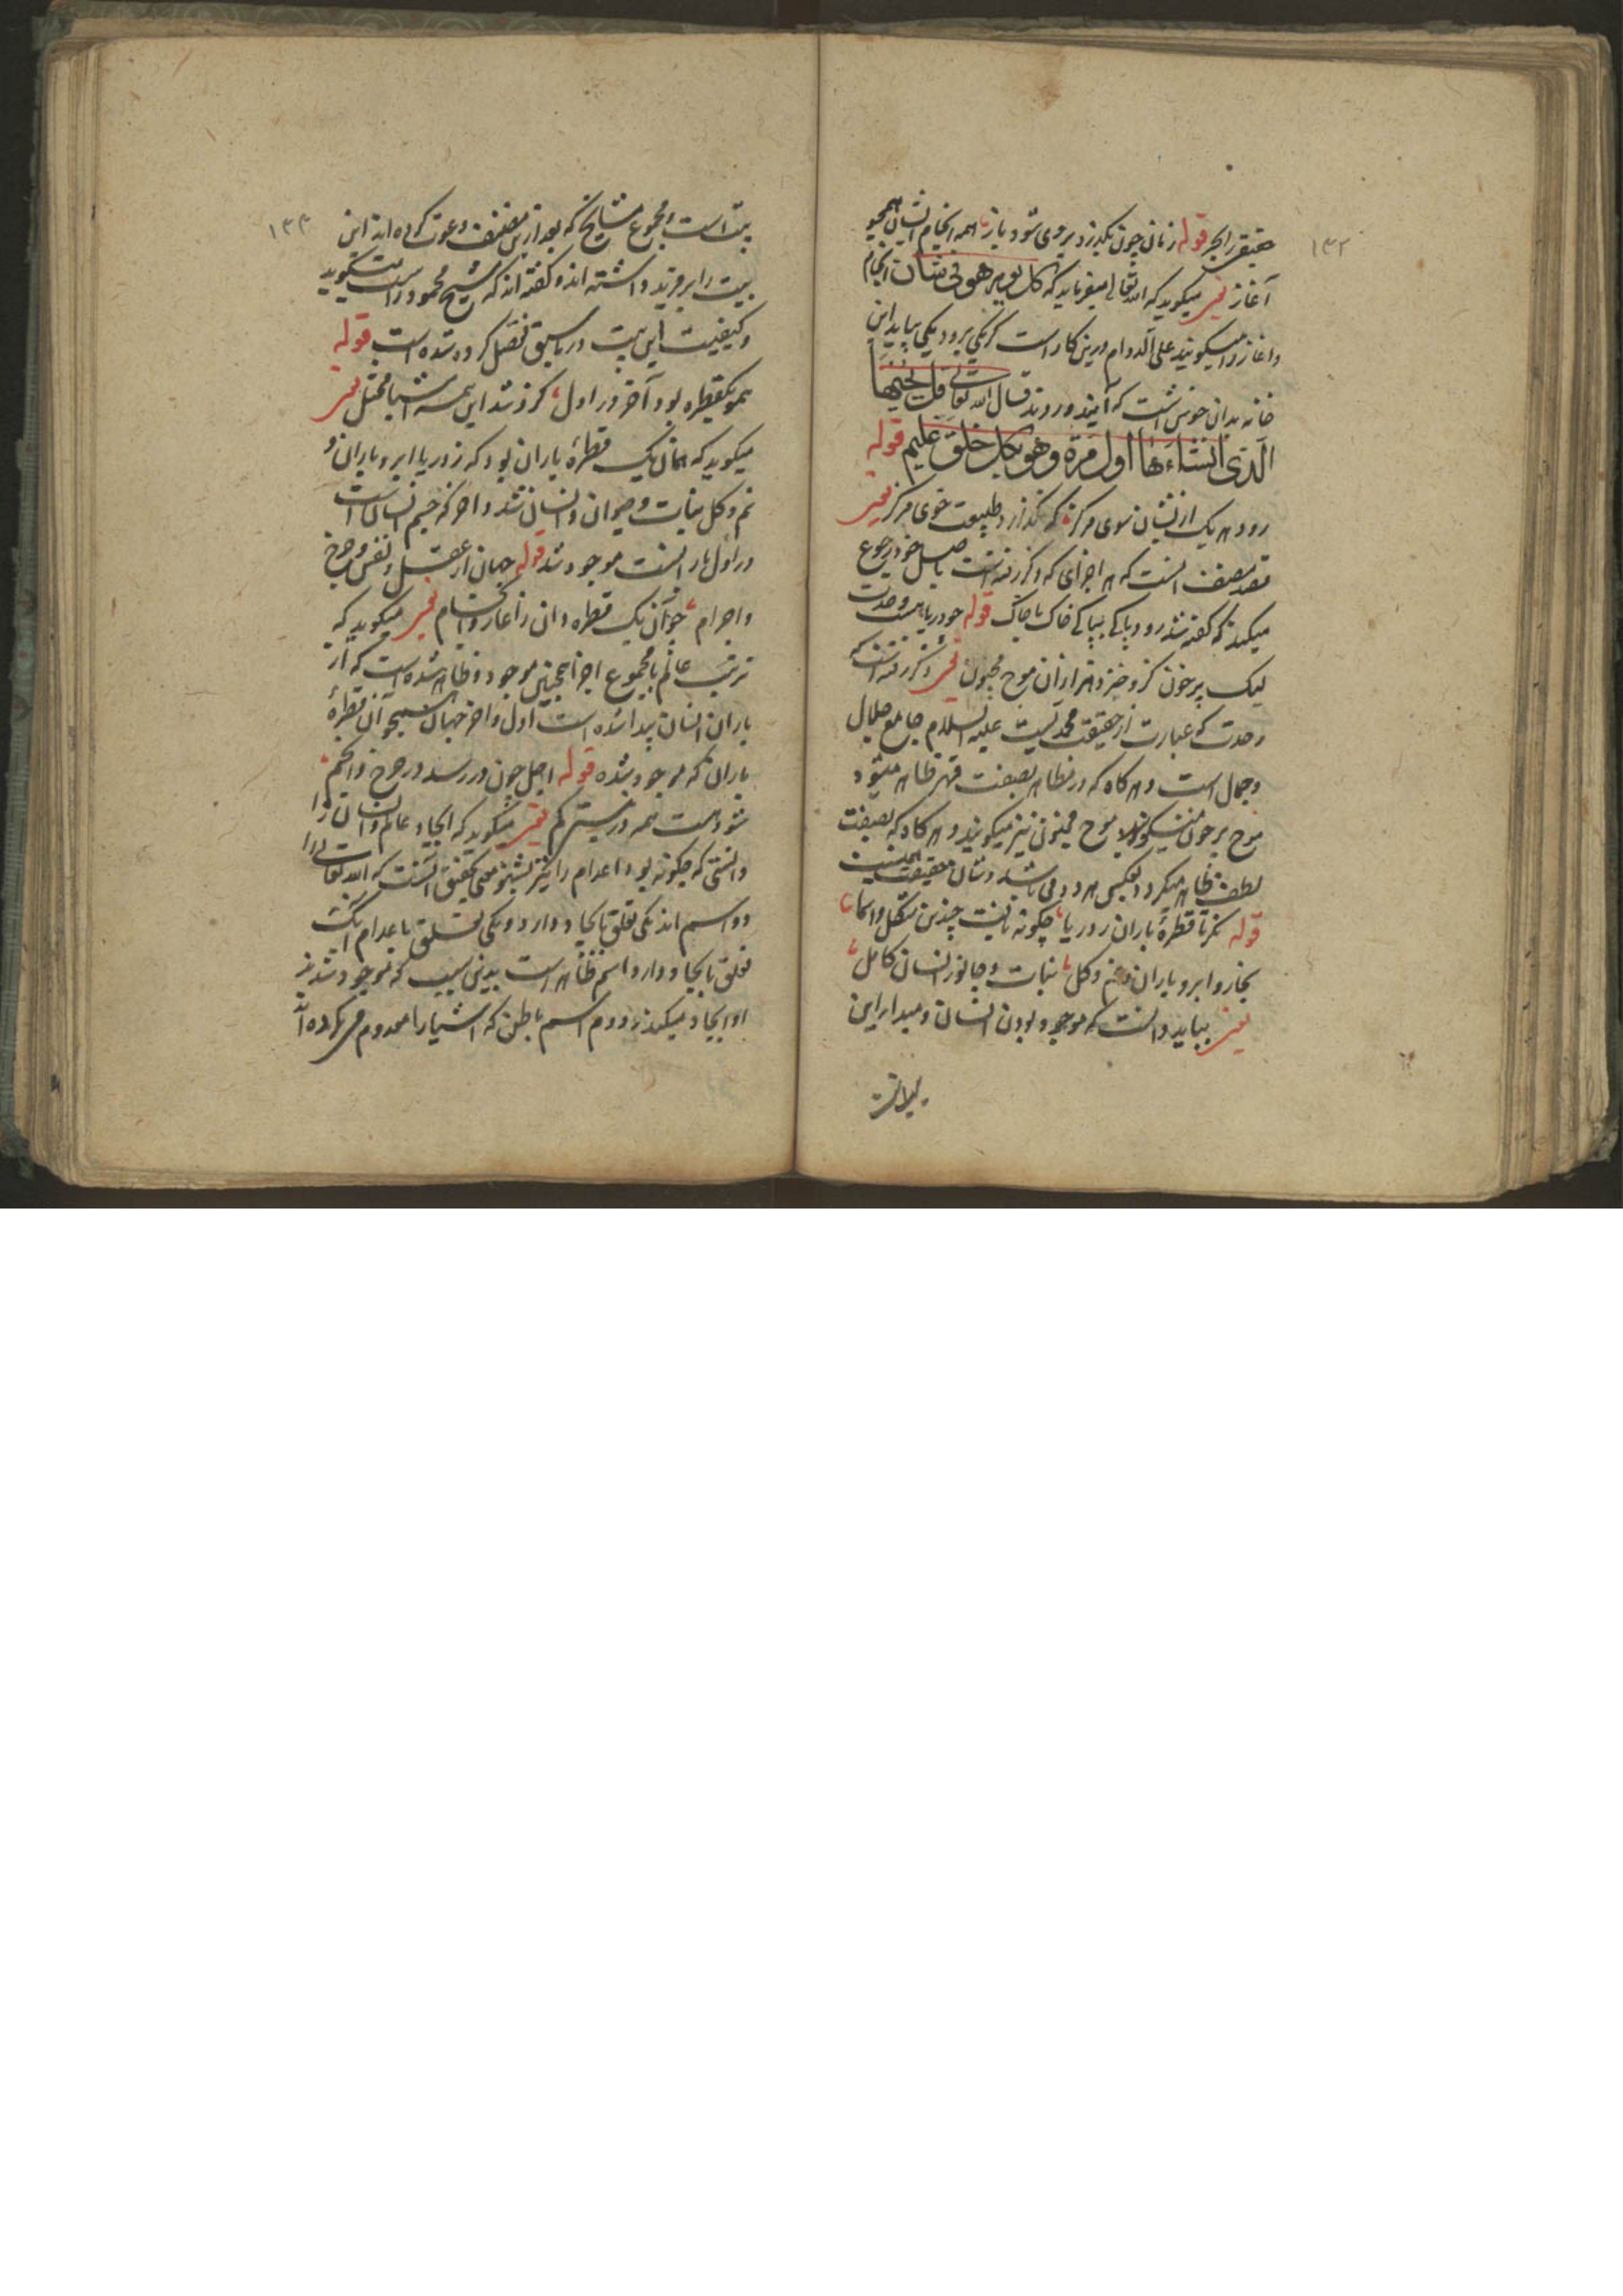 ۱۳۲
قوله زمان چون بگذرد بر وی شود باز همه انجام ایشان همچو
آغاز یعنی میگوید که الله تعالی میفرماید که کل یوم هو فی شان انجام
و اغاز را میگویند علی الدوام درین کار است که یکی برود یکی بیاید این
خانه بدان خوش است که آیند و روند قال الله تعالی قل یحییها
الذی انشاءها اول مرة وهو بکل خلق علیم قوله
رود هر یک ازیشان سوی مرکز که نگذارد طبیعت خوی مرکز یعنی
مصنف انست که هر اجزای که ذکر رفته است باصل خود رجوع
میکند که گفته شد رود پاکی بپاکی خاک با خاک قوله چو دریاییست وحدت
لیک پر خون کزو خیزد هزاران موج مجنون یعنی ذکر رفته است که
وحدت که عبارت از حقیقت محمدیست علیه السلام جامع جلال
و جمال است و هر گاه که در مظاهر بصفت قهر ظاهر میشود
موج پر خون میگویند موج مجنون نیز میگویند و هر گاه که بصفت
لطف ظاهر میگردد
قوله نگر تا قطرهٔ باران ز دریا چگونه یافت چندین شکل و اسما
بخار و ابر و باران و نم و گل نبات و جانور انسان کامل
یعنی بباید دانست که موجود بودن انسان و مبدا را این
بیت است
۱۳۳
بیت است و مجموع مشایخ که بعد ازین مصنف دعوت کرده اند این
بیت را داشته اند و گفته اند که شیخ محمود راست میگوید
و کیفیت این بیت در ما سبق تفصیل کرده شده است قوله
همو یکقطره بود آخر در اول کزو شد این همه اشیا ممثل یعنی
میگوید که همان یک قطرهٔ باران بود که ز دریا ابر و باران و
نم و گل نبات و حیوان و انسان شد و اخر که جسم انسان است
در اول باز انست موجود شد قوله جهان از عقل و نفس و چرخ
و اجرام چو آن یک قطره دان ز آغاز و انجام یعنی میگوید که
ترتیب عالم با مجموع اجزا همچنین موجود و ظاهر شده است که از
باران انسان پیدا شده است اول و اخر جهان همچو آن قطرهٔ
باران که موجود شده قوله اجل چون در رسد در چرخ و انجم
شود هست همه در نیستی گم یعنی میگوید که ایجاد عالم و انسان را
دانستی که چگونه بود اعدام را نیز بشنو معنی تحقیق انست که الله تعالی را
دو اسم اند یکی تعلق بایجاد دارد و یکی تعلق باعدام انک
تعلق بایجاد دارد اسم ظاهر است بدین سبب که موجود شدند
او ایجاد میکند و دوم اسم باطن که اشیا را معدوم